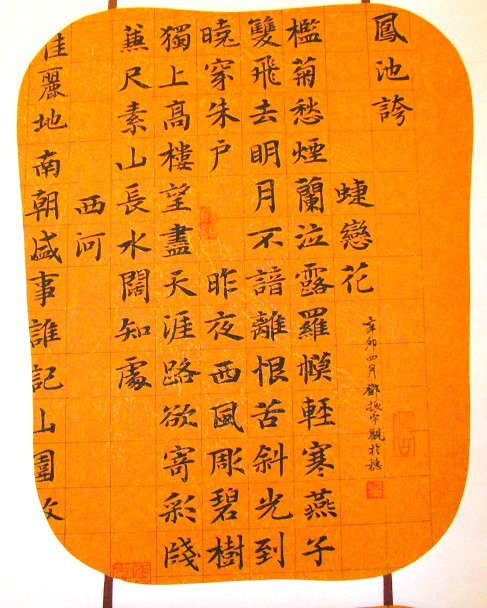 鳳池誇
蜨戀花
辛卯四月
檻菊愁煙蘭泣露羅幙輕寒燕子
雙飛去明月不諳離恨苦斜光到
曉穿朱戶 昨夜西風彫碧樹
獨上高樓望盡天涯路欲寄彩牋
兼尺素山長水闊知處
西河
佳麗地南朝盛事誰記山圍故